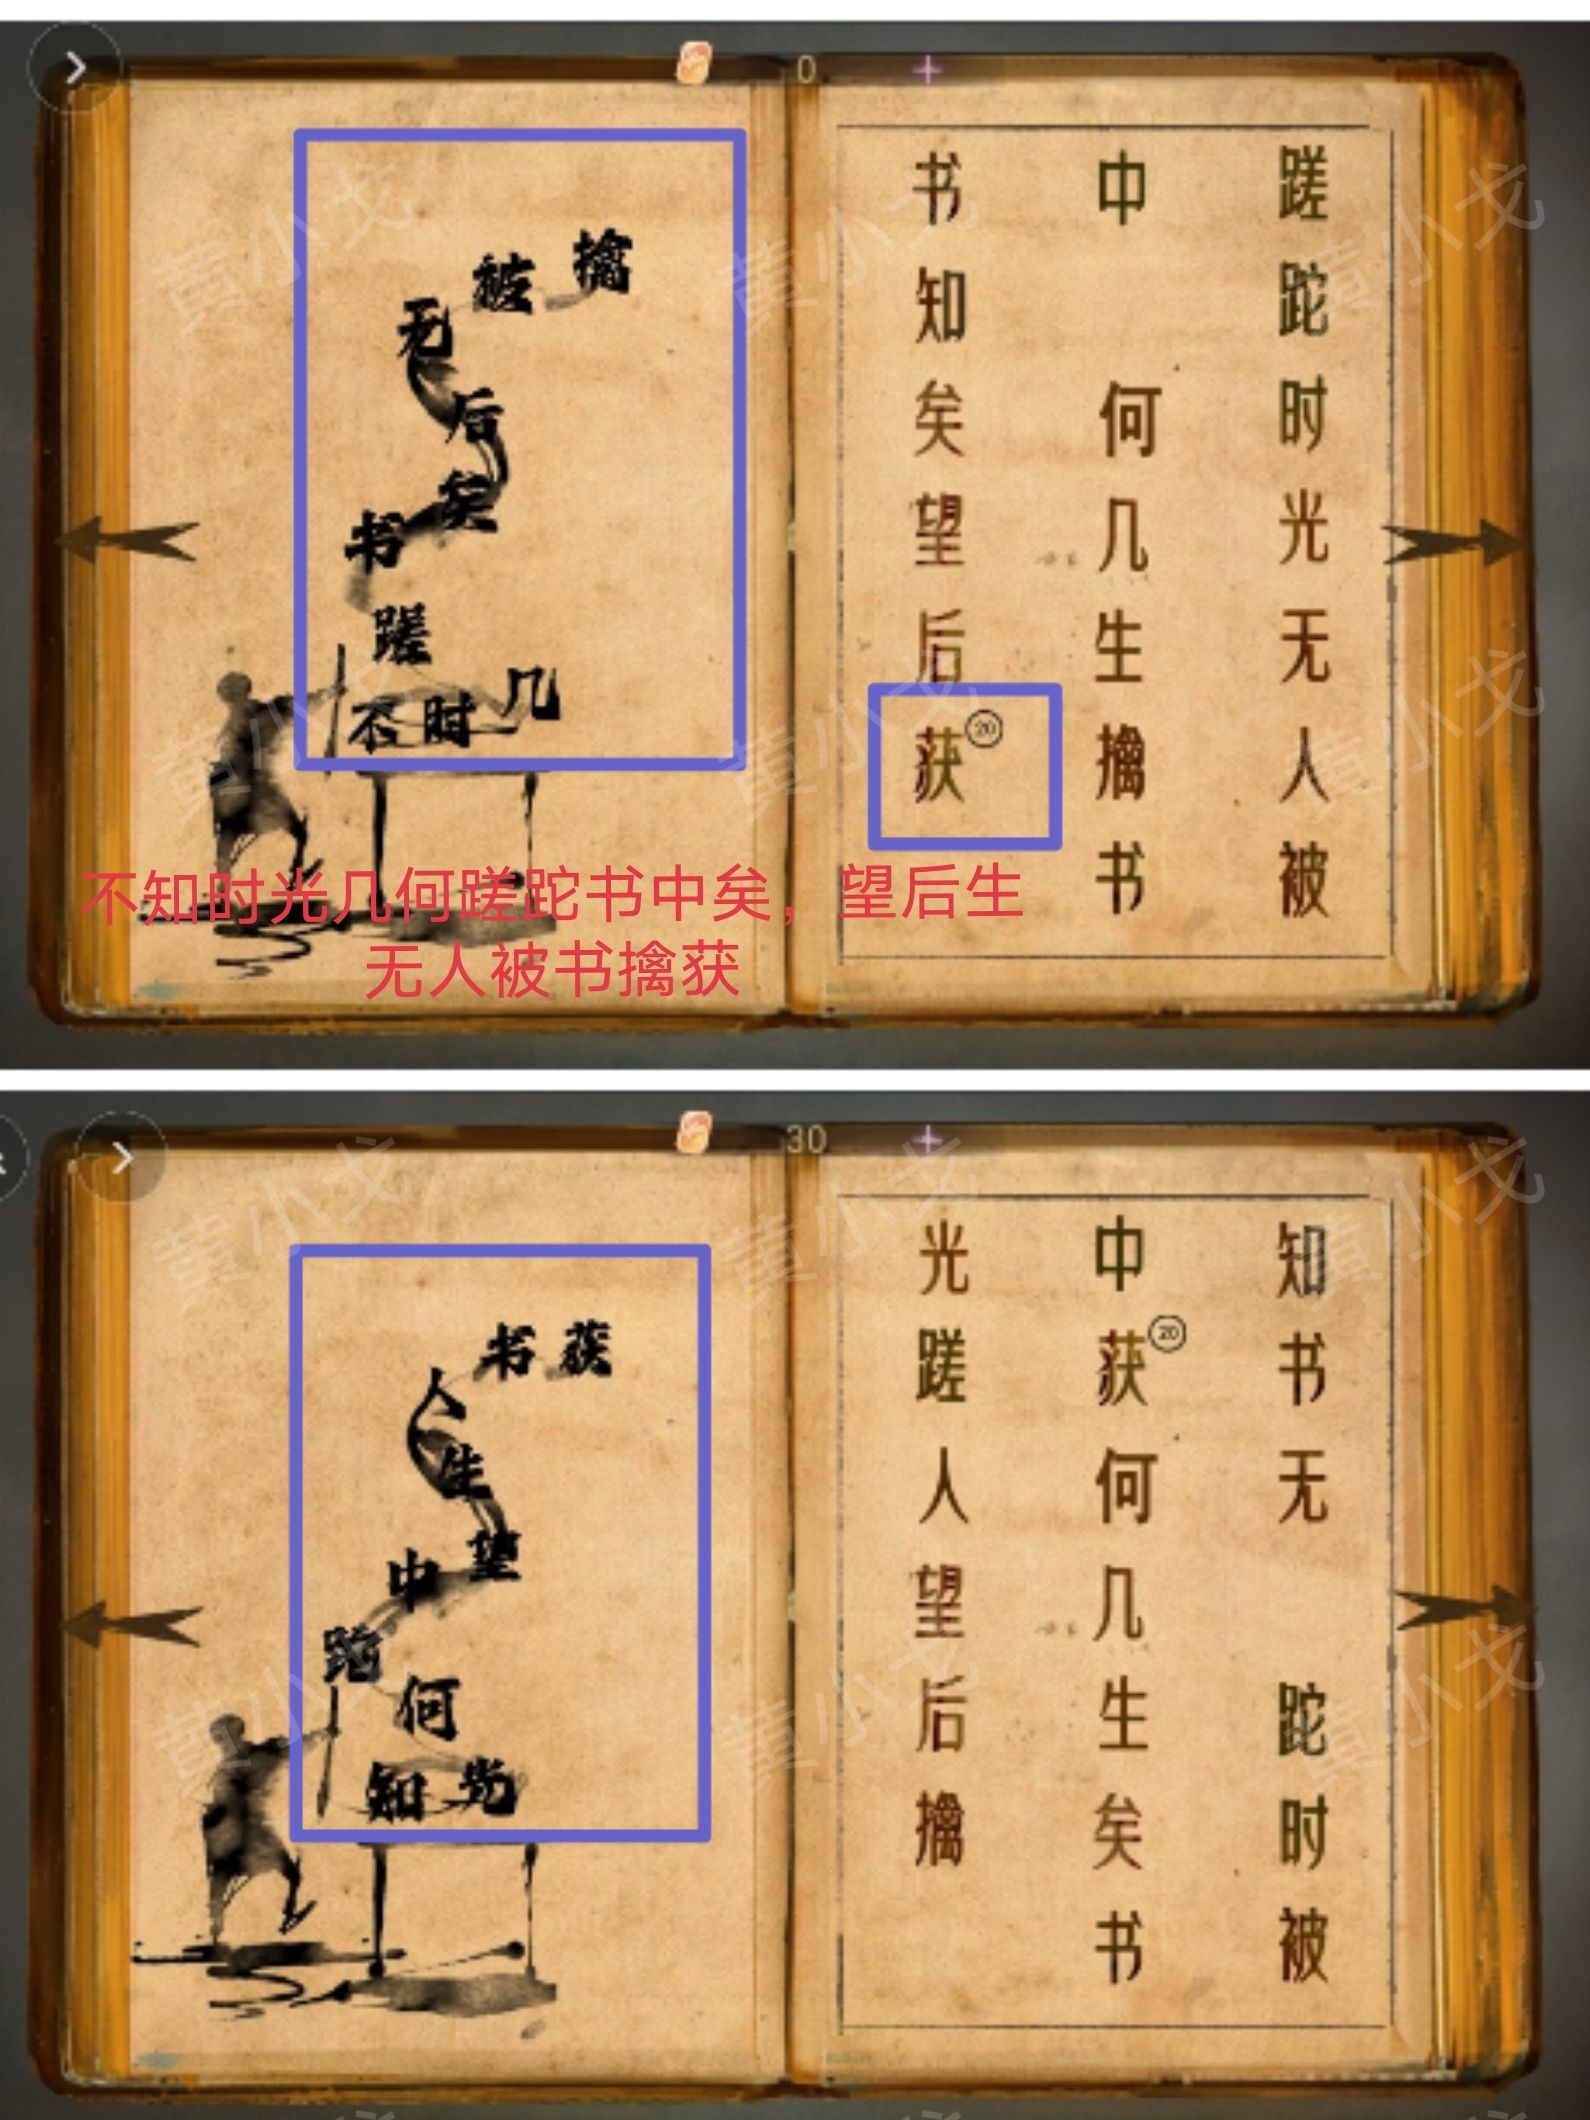 0
擒
被
无
后
矣
书
蹉
不时几
蹉跎时光无人被
中何几生擒书
书知矣望后获⑳
不知时光几何蹉跎书中矣，望后生
无人被书擒获
30
书获
人
生
望
中
跎
何
知光
知书无跎时被
中获⑳何几生矣书
光蹉人望后擒
黄小戈